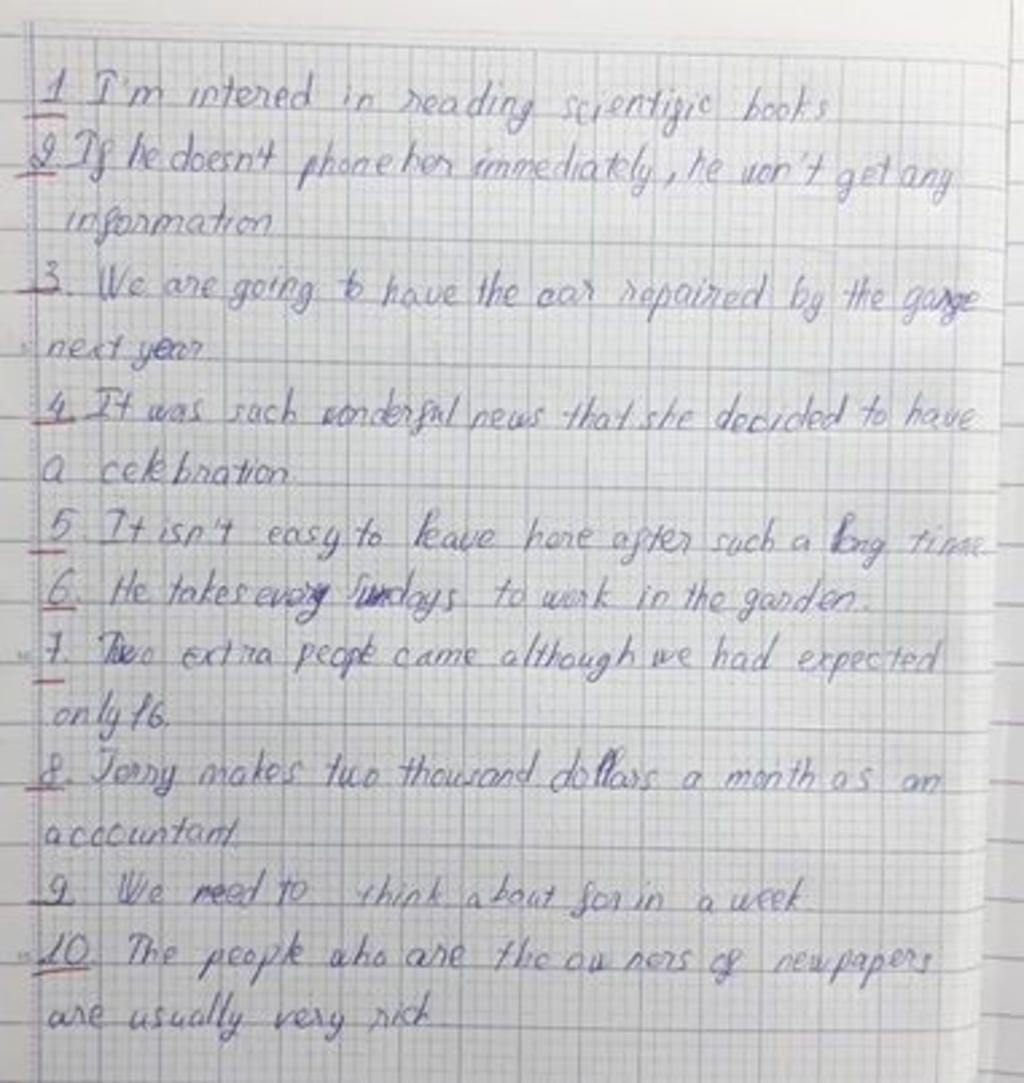 1 I'm intered in reading scientific books
2 If he doesn't phone her immediately, he won't get any
information
3. We are going to have the car repaired by the garge
next year
4. It was such wonderful news that she decided to have
a celebration
5 It isn't easy to leave here after such a long time
6. He takes every Sundays to work in the garden.
7. Two extra people came although we had expected
only 16.
8. Jerry makes two thousand dollars a month as an
acccuntant
9. We need to think about for in a week
10 The people who are the owners of newpapers
are usually very rich